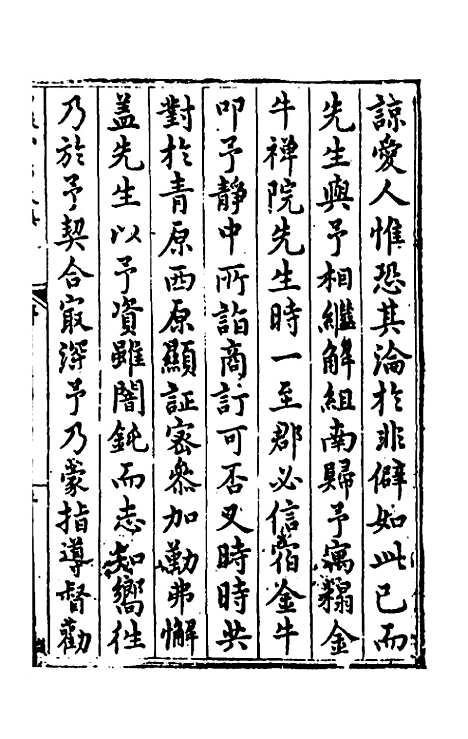 諒愛人惟恐其淪於非僻如此已而
先生與予相繼解組南歸予寓糺金
牛禅院先生時一至郡必信宿金牛
叩予靜中所詣商訂可否又時時共
對於青原西原顯証宻叅加勤弗懈
盖先生以予資雖闇鈍而志知嚮徃
乃於予契合㝡深予乃蒙指導督勸